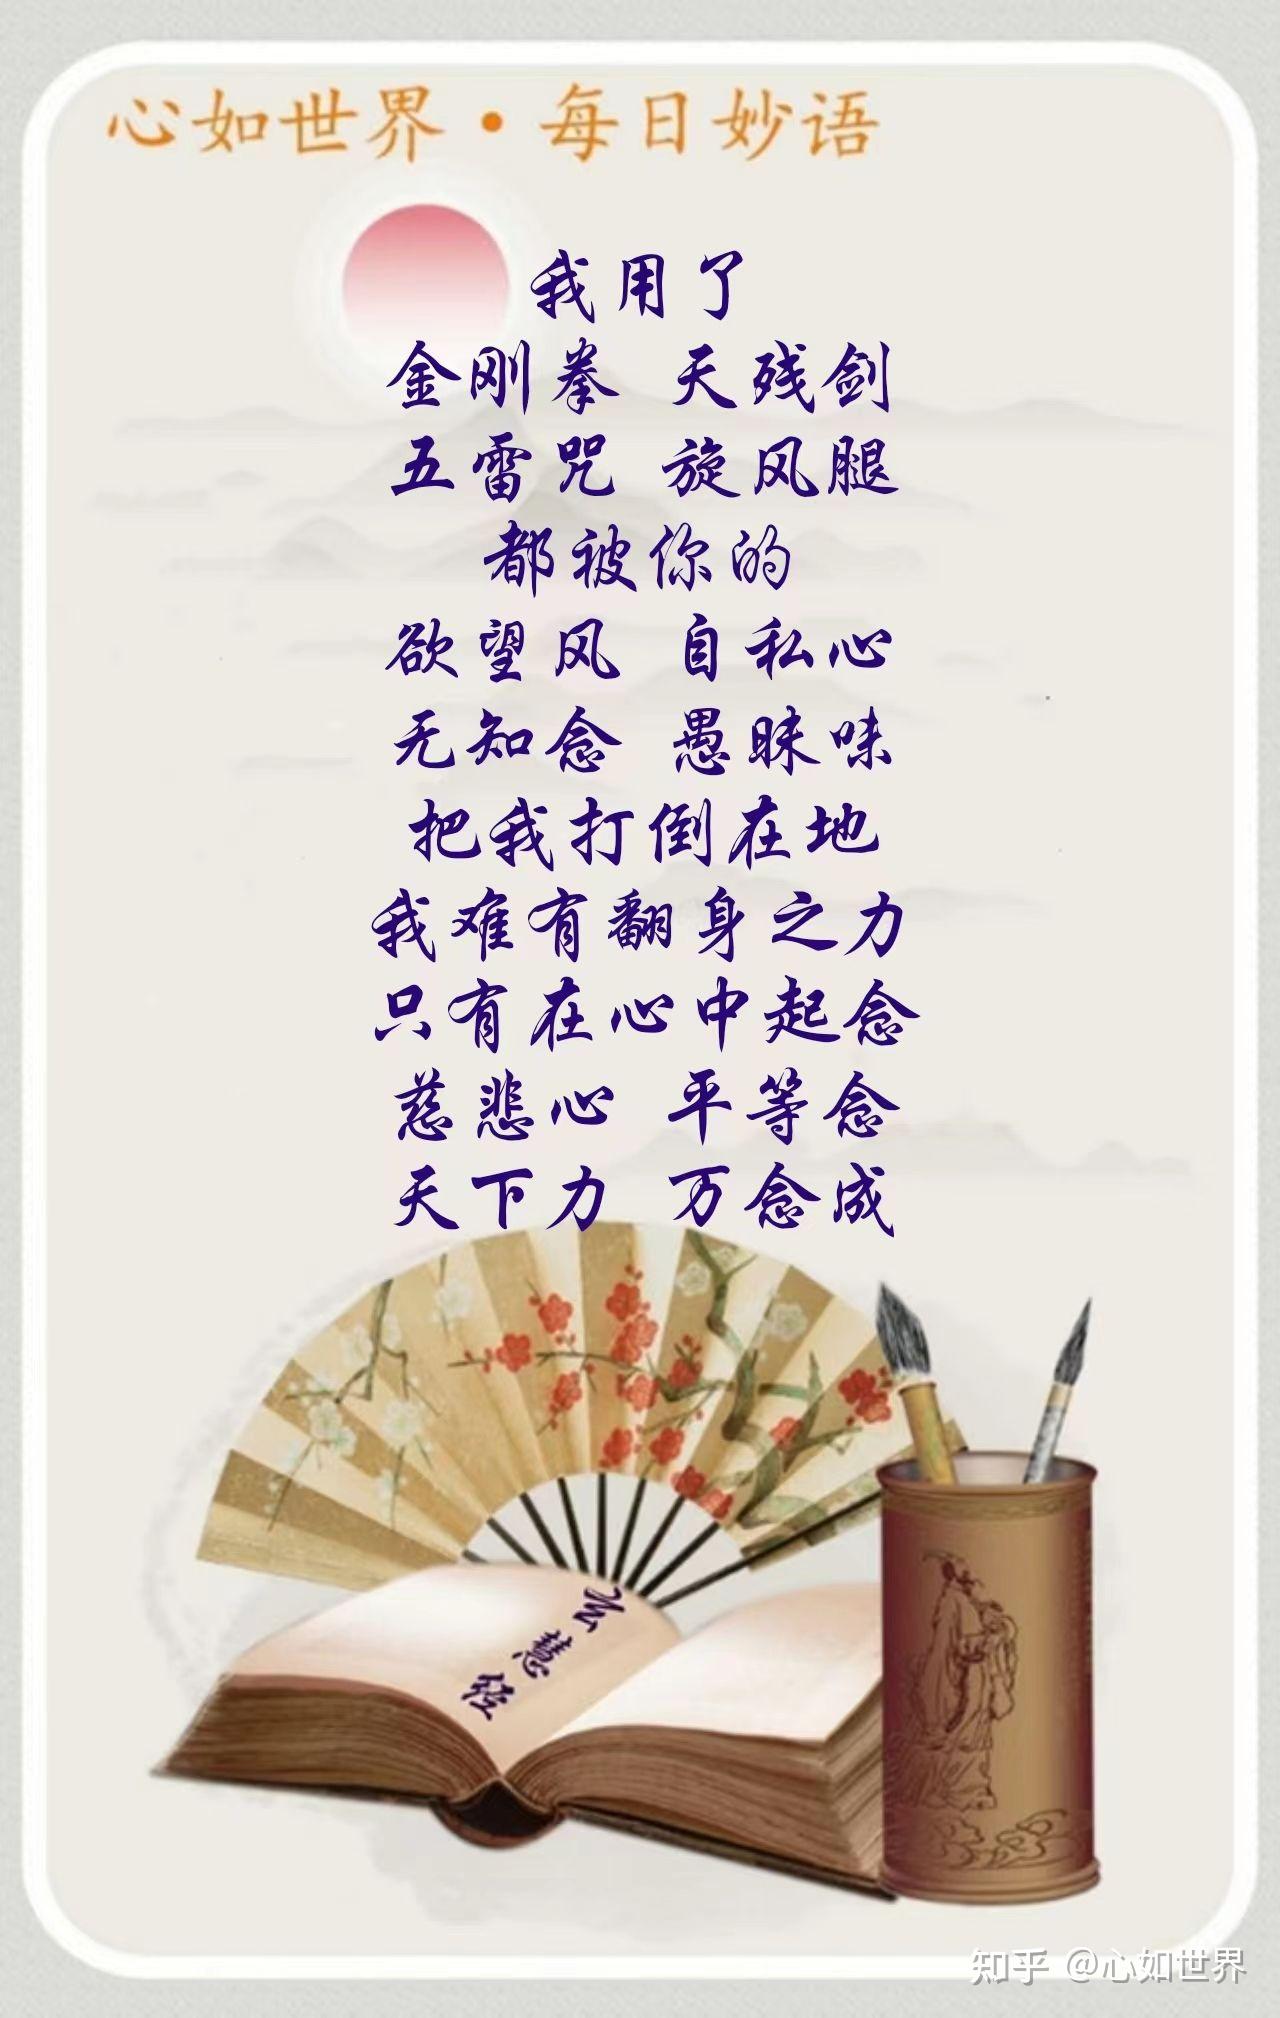 心如世界·每日妙语
我用了
金刚拳 天残剑
五雷咒 旋风腿
都被你的
欲望风 自私心
无知念 愚昧味
把我打倒在地
我难有翻身之力
只有在心中起念
慈悲心 平等念
天下力 万念成
玄慧经
知乎 @心如世界